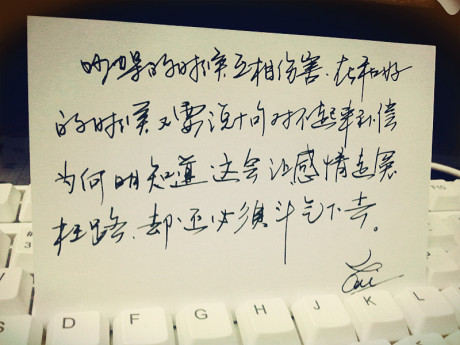 吵架的时候互相伤害.在和好
的时候又要说十句对不起来补偿
为何明知道这会让感情走冤
枉路.却还必须斗气下去。
F10
S D F G H J K L